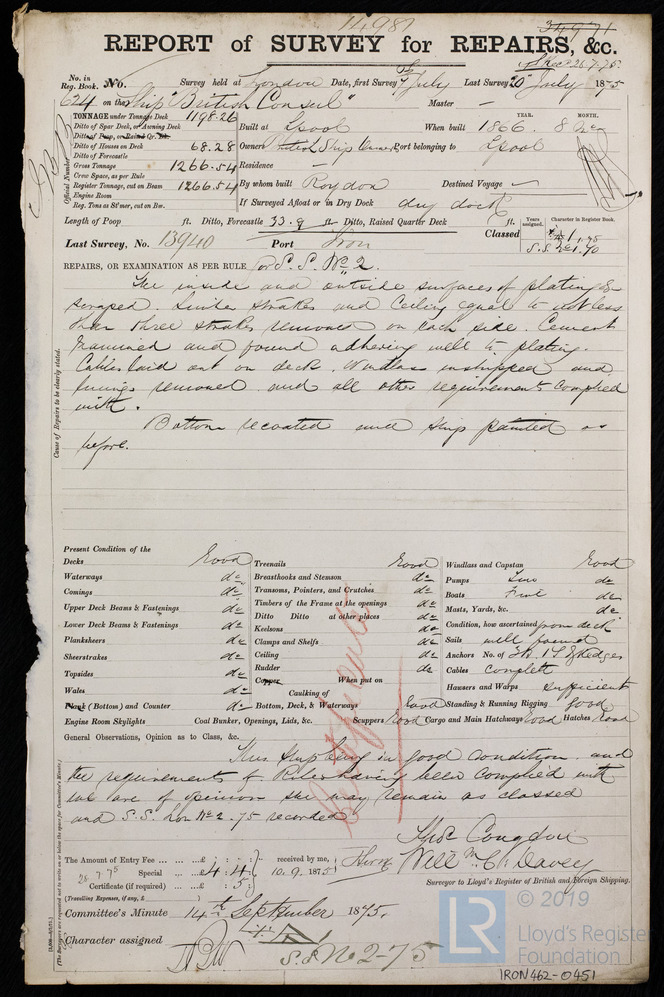 14981
34971
REPORT of SURVEY for REPAIRS, &c.
Recd 26.7.75
No. in Reg. Book.
No. Survey held at London Date, first Survey 7th July Last Survey 23 July 1875
624 on the Ship "British Consul" Master —
TONNAGE under Tonnage Deck 1198.26
Ditto of Spar Deck, or Awning Deck
Ditto of Poop, or Raised Qr. Dk.
Ditto of Houses on Deck 68.28
Ditto of Forecastle
Gross Tonnage 1266.54
Crew Space, as per Rule
Register Tonnage, cut on Beam 1266.54
Engine Room
Reg. Tons as St'mer, cut on Bm.
Official Number
Built at Lpool When built YEAR. 1866 MONTH. 8
Owners Ship Owners Port belonging to Lpool
Residence —
By whom built Roydon Destined Voyage —
If Surveyed Afloat or in Dry Dock dry dock
Length of Poop ft. Ditto, Forecastle 33.9 ft. Ditto, Raised Quarter Deck ft.
Classed
Years assigned. Character in Register Book.
A 1 1.75
S.S. 1.70
Last Survey, No. 13940 Port Lon
REPAIRS, OR EXAMINATION AS PER RULE for S.S. No 2.
The inside and outside surfaces of plating &
scraped. Limber strakes and Ceiling equal to not less
than three strakes removed on each side. Cement
examined and found adhering well to plating.
Cables laid out on deck. Windlass unshipped and
linings removed and all other requirements complied
with.
Bottom recoated and ship painted as
before.
Cause of Repairs to be clearly stated.
Present Condition of the
Decks Good
Waterways do
Comings do
Upper Deck Beams & Fastenings do
Lower Deck Beams & Fastenings do
Planksheers do
Sheerstrakes do
Topsides do
Wales do
Plank (Bottom) and Counter do
Engine Room Skylights
Treenails Good
Breasthooks and Stemson do
Transoms, Pointers, and Crutches do
Timbers of the Frame at the openings do
Ditto Ditto at other places do
Keelsons do
Clamps and Shelfs do
Ceiling do
Rudder do
Copper When put on
Caulking of
Bottom, Deck, & Waterways Good
Coal Bunker, Openings, Lids, &c. Scuppers Good
Windlass and Capstan Good
Pumps Two do
Boats Five do
Masts, Yards, &c. do
Condition, how ascertained from deck
Sails well found
Anchors No. of
Cables Complete
Hausers and Warps sufficient
Standing & Running Rigging Good
Cargo and Main Hatchways Good Hatches Good
General Observations, Opinion as to Class, &c.
This ship being in good condition and
the requirements of Rules having been complied with
we are of opinion she may remain as classed
and S.S. Lon No 2-75 recorded
Thos Congdon
Will
Surveyor to Lloyd's Register of British and Foreign Shipping.
The Amount of Entry Fee ... ... £
28 7 75 Special ... ... £4 : 4 :
Certificate (if required) ... £ : 5 :
received by me,
10.9.1875
(Travelling Expenses, if any, £ )
Committee's Minute 14th September 1875.
Character assigned
S.S. No 2-75
(The Surveyors are requested not to write on or below the space for Committee's Minute.)
© 2019
LR
Lloyd's Register
Foundation
IRON462-0451